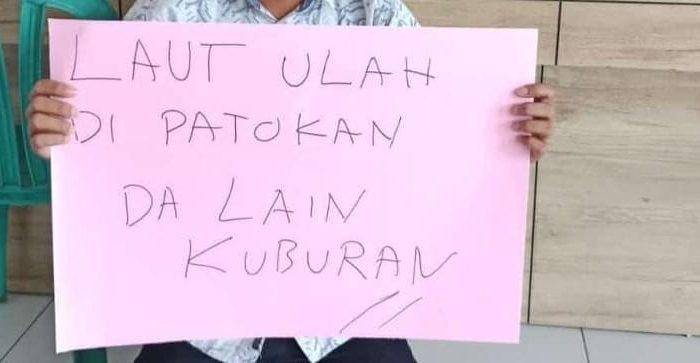 LAUT ULAH
DI PATOKAN
DA LAIN
KUBURAN //